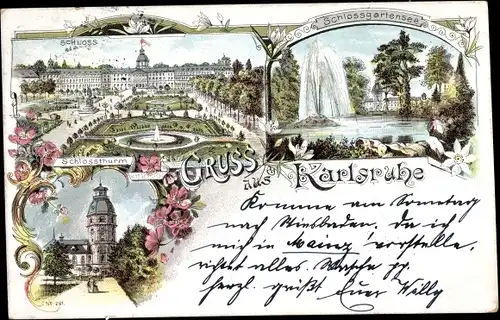 SCHLOSS
Schlossgartensee
Schlossthurm
GRUSS
aus
Karlsruhe
Komme am Sonntag
nach Wiesbaden, da ich
mich in Mainz vorstelle,
richtet alles. Wasche pp.
herzl. grüßt Euer Willy